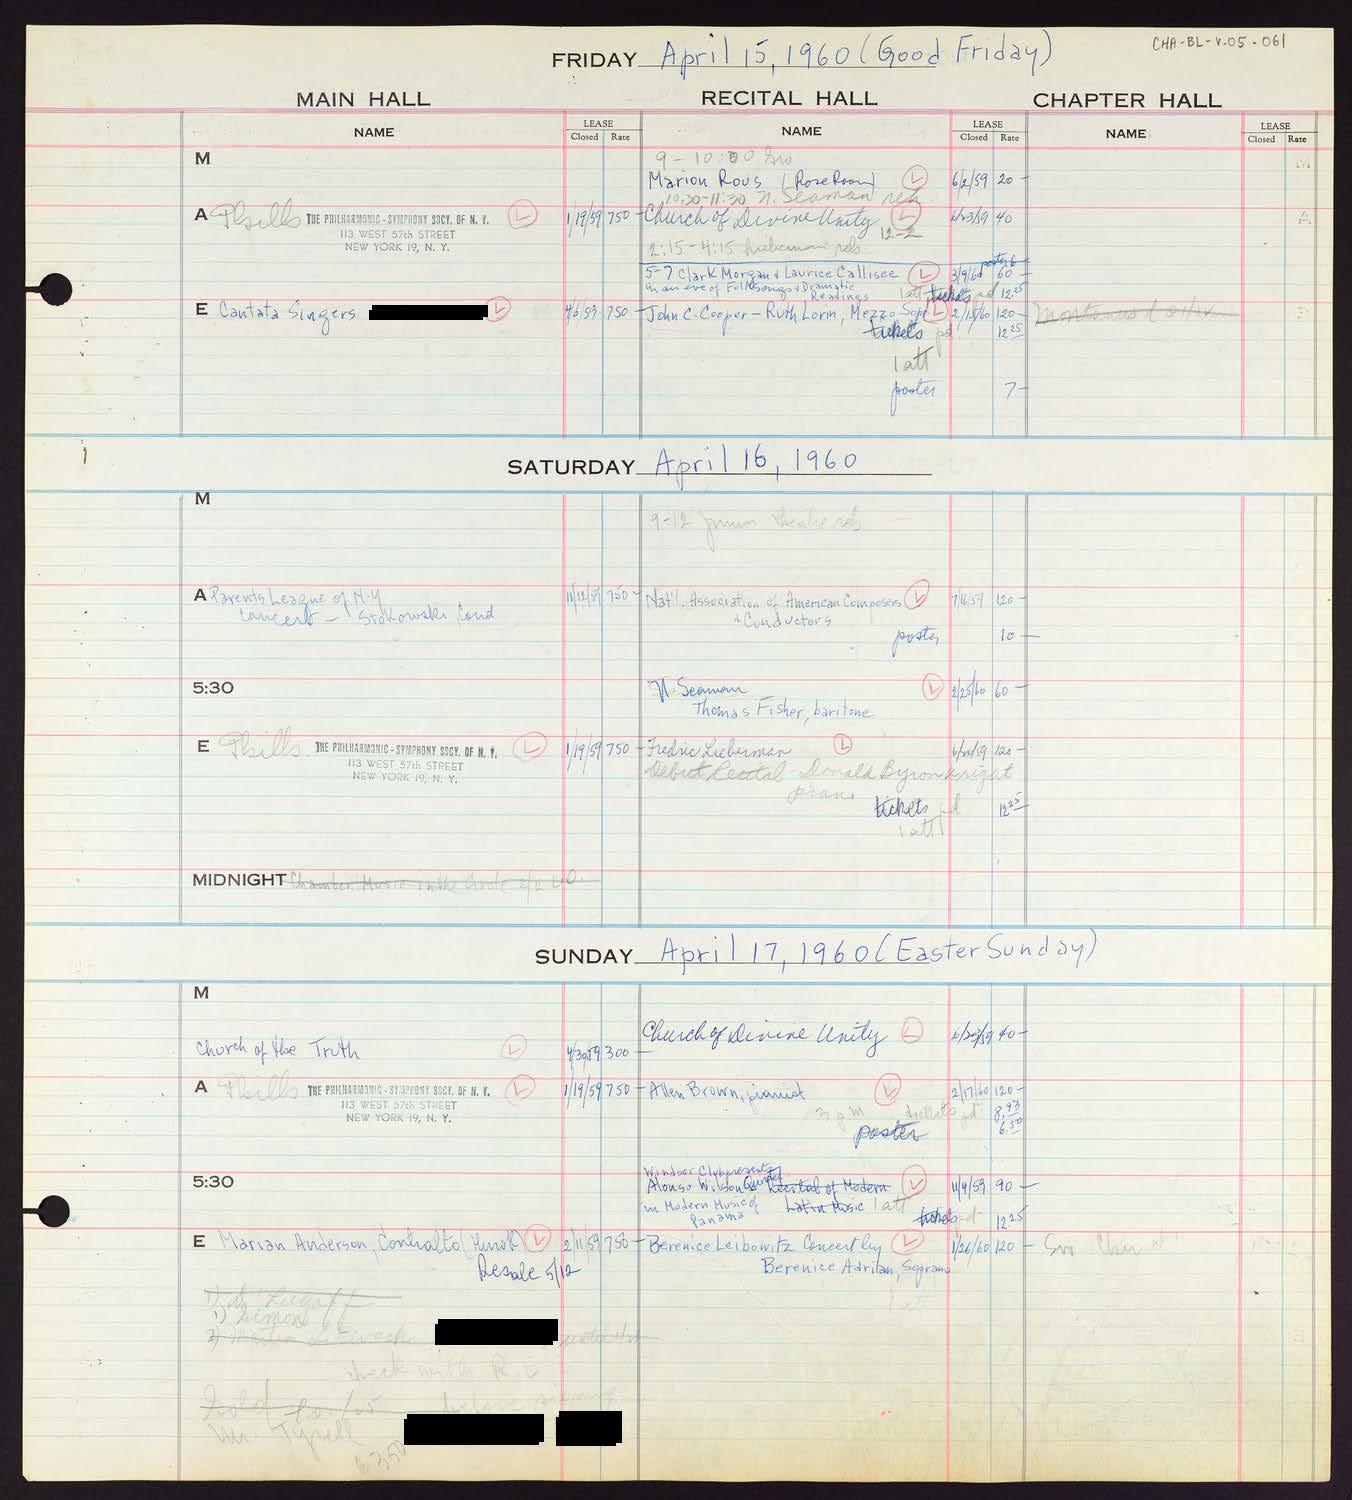 CHA-BL-V.05-061
FRIDAY April 15, 1960 (Good Friday)
MAIN HALL RECITAL HALL CHAPTER HALL
NAME LEASE Closed Rate NAME LEASE Closed Rate NAME LEASE Closed Rate
M
9-10:00
Marion Rous (Rose Room) L 6/2/59 20-
10:30-11:30 N. Seaman reh
A Phills THE PHILHARMONIC-SYMPHONY SOCY. OF N. Y. L 1/19/59 750- Church of Divine Unity L 40
113 WEST 57th STREET 12-2
NEW YORK 19, N. Y.
2:15-4:15 Lieberman reh
poster 6-
5-7 Clark Morgan & Laurice Callisee L 3/9/60 60-
in an eve of Folksongs & Dramatic
Readings 1 att tickets pd 12.25
E Cantata Singers L 4/6/59 750- John C. Cooper - Ruth Lorin, Mezzo Sopr L 2/15/60 120-
tickets pd 12.25
1 att
poster 7-
SATURDAY April 16, 1960
M
9-12 Junior theatre reh
A Parents League of N.Y 11/12/59 750- Nat'l. Association of American Composers L 7/16/59 120-
Concert - Stokowski, Cond & Conductors
poster 10-
5:30 N. Seaman L 2/25/60 60-
Thomas Fisher, baritone
E Phills THE PHILHARMONIC-SYMPHONY SOCY. OF N. Y. L 1/19/59 750- Fredric Lieberman L 120-
113 WEST 57th STREET
NEW YORK 19, N. Y.
Debut Recital - Donald Byron Wright
piano
tickets pd 12.25
1 att
MIDNIGHT Chamber Music in the Circle
SUNDAY April 17, 1960 (Easter Sunday)
M
Church of Divine Unity L 40-
Church of the Truth L 4/30/59 300-
A Phills THE PHILHARMONIC-SYMPHONY SOCY. OF N. Y. L 1/19/59 750- Allen Brown, pianist L 2/17/60 120-
113 WEST 57th STREET
NEW YORK 19, N. Y.
3 p m pd 8.93
poster 6.50
Windsor Club presents
5:30 Alonso Wilson Quintet Recital of Modern L 11/9/59 90-
in Modern Music of Latin Music 1 att
Panama tickets pd 12.25
E Marian Anderson, Contralto (Hurok) L 2/11/59 750- Berenice Leibowitz Concert by L 1/26/60 120-
Resale 5/12 Berenice Adrian, Soprano
1 att
1)
1)
2)
check with R. E
Hold for
before
Mr. Tyrell